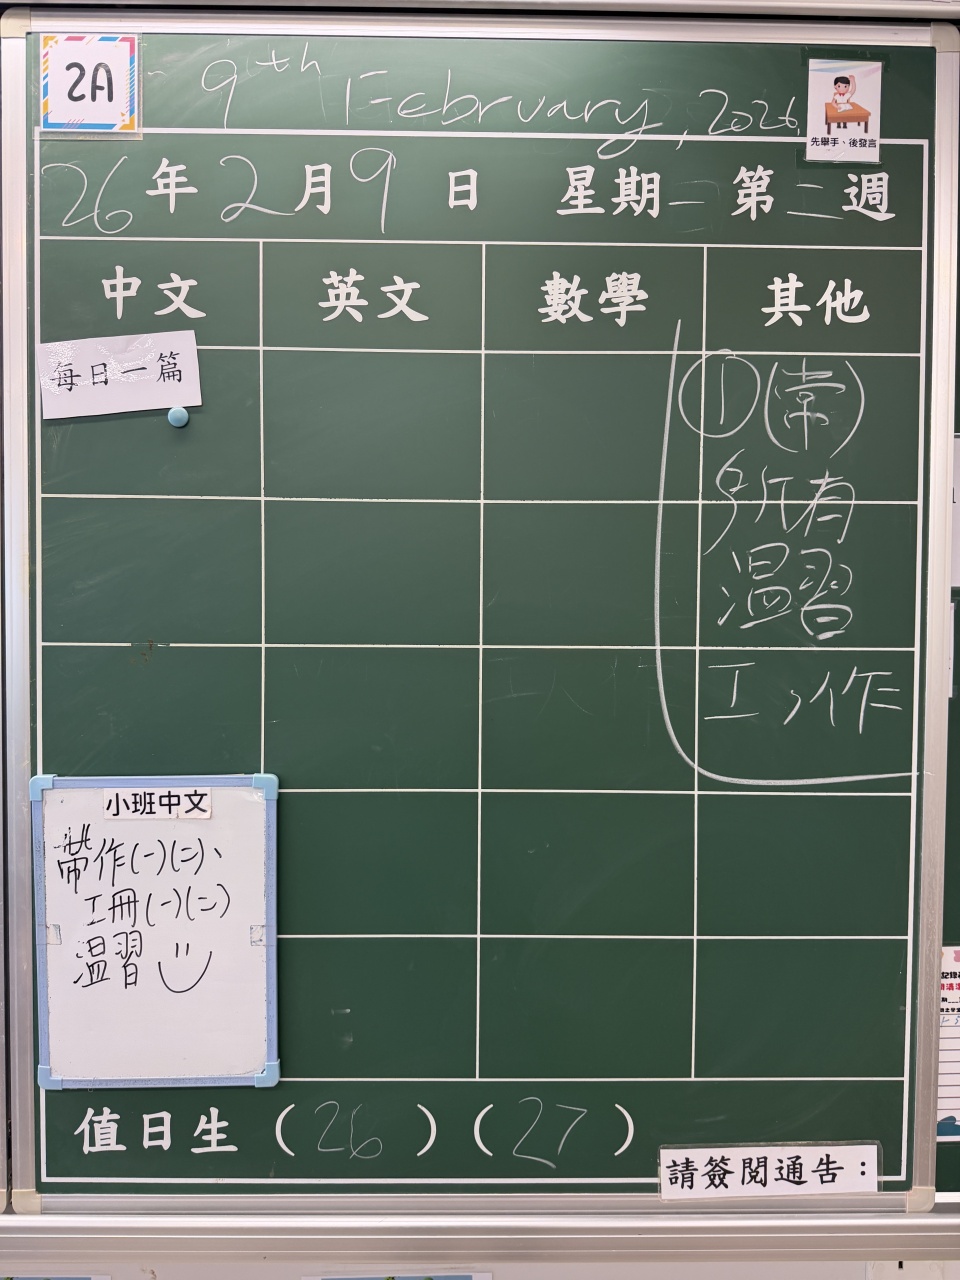 2A
9th February, 2026
先舉手、後發言
26年2月9日 星期二 第二週
中文 英文 數學 其他
每日一篇
①(常)
所有
溫習
工作
小班中文
帶作(一)(二)、
工冊(一)(二)
溫習
值日生 (26)(27)
請簽閱通告：